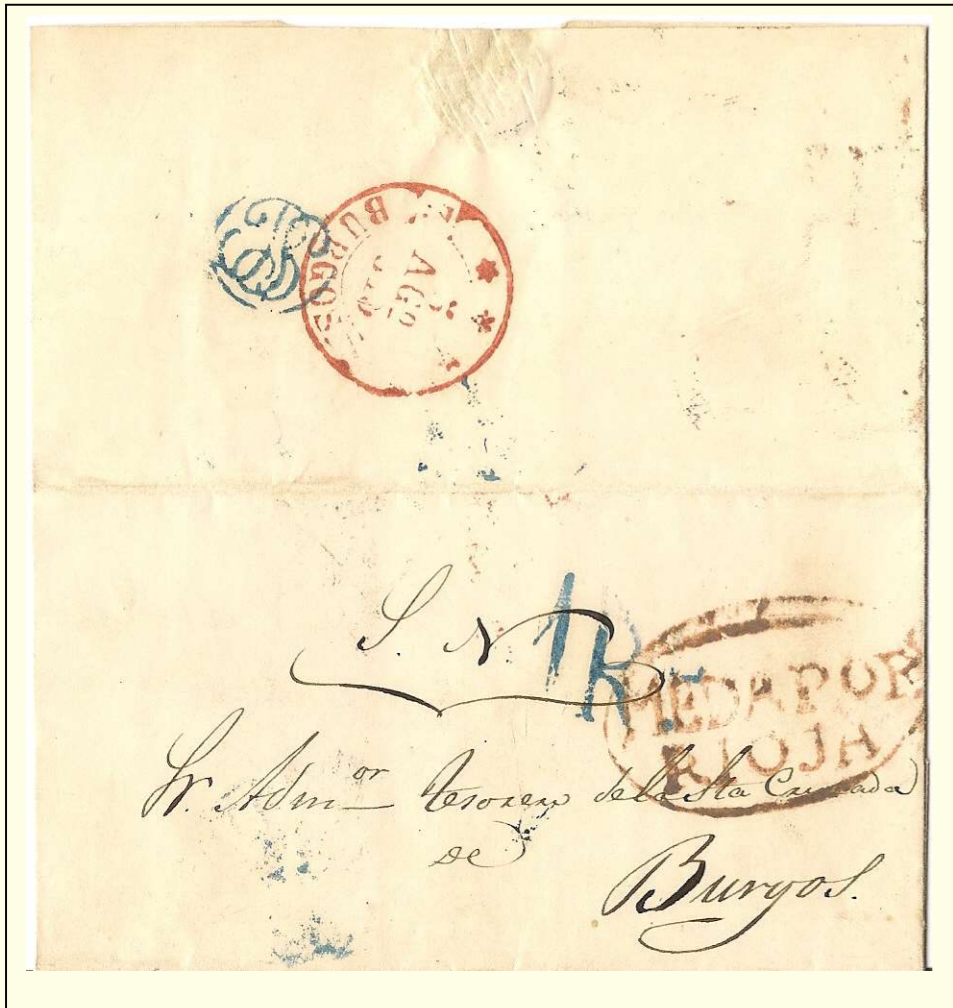 BURGOS
AGO
S. N.
1R
MEDAPOR
RIOJA
Sr. Adm.or tesorero de la Sta Cruzada
de
Burgos.